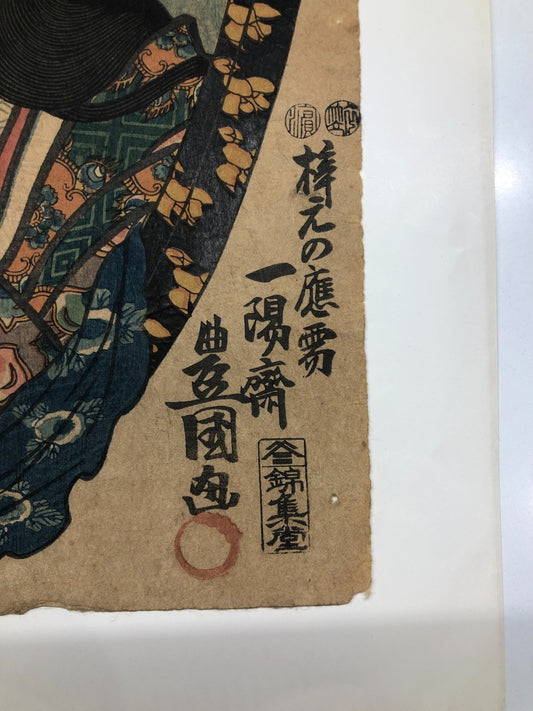 濱
梓元の應需
一陽齋
豊国画
錦集堂